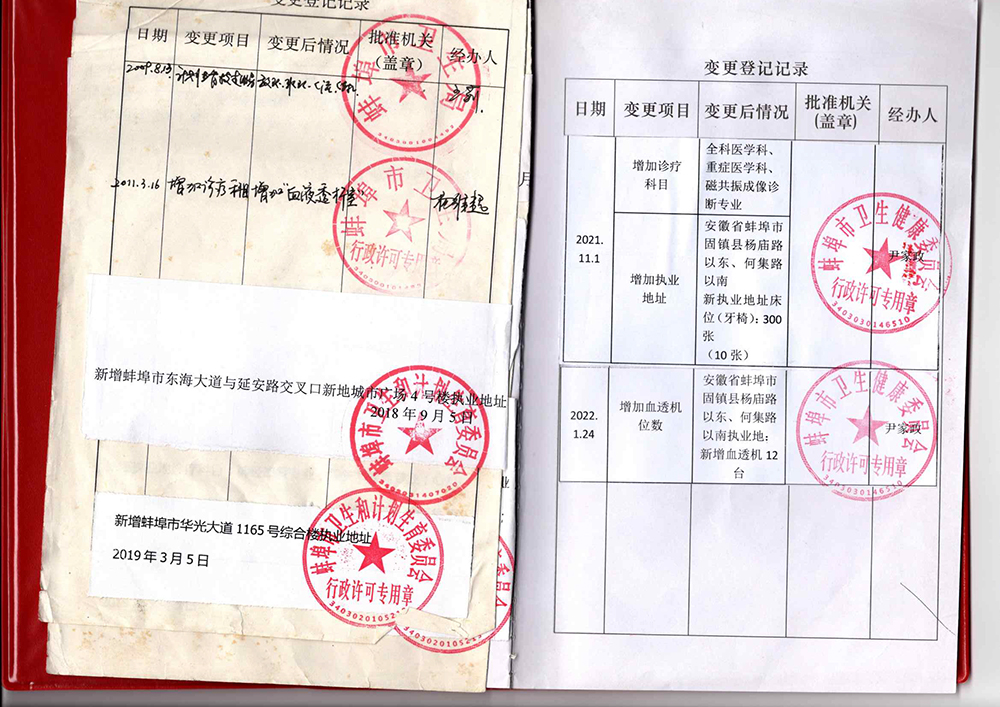 变更登记记录
日期 变更项目 变更后情况 批准机关
(盖章) 经办人
2009.8.13
2011.3.16 增加诊疗科目 增加"血液透析室"
蚌埠市卫生局
蚌埠市卫生
行政许可专用
新增蚌埠市东海大道与延安路交叉口新地城市广场4号楼执业地址
2018年9月5日
蚌埠市卫生和计划生育委员会
3403031407020
新增蚌埠市华光大道1165号综合楼执业地址
2019年3月5日
蚌埠市卫生和计划生育委员会
行政许可专用章
变更登记记录
日期 变更项目 变更后情况 批准机关
(盖章) 经办人
2021.
11.1
增加诊疗
科目
全科医学科、
重症医学科、
磁共振成像诊
断专业
增加执业
地址
安徽省蚌埠市
固镇县杨庙路
以东、何集路
以南
新执业地址床
位(牙椅):300
张
(10张)
尹家政
蚌埠市卫生健康委员会
行政许可专用章
3403030146510
2022.
1.24
增加血透机
位数
安徽省蚌埠市
固镇县杨庙路
以东、何集路
以南执业地:
新增血透机12
台
尹家政
蚌埠市卫生健康委员会
行政许可专用章
3403030146510